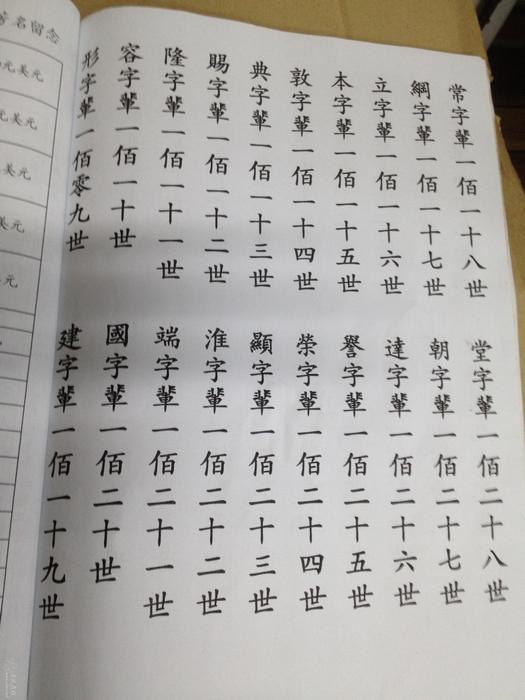 芳名留念
元美元
元美元
美元
美元
元
形字輩一佰零九世
容字輩一佰一十世
隆字輩一佰一十一世
賜字輩一佰一十二世
典字輩一佰一十三世
敦字輩一佰一十四世
本字輩一佰一十五世
立字輩一佰一十六世
綱字輩一佰一十七世
常字輩一佰一十八世
建字輩一佰一十九世
國字輩一佰二十世
端字輩一佰二十一世
淮字輩一佰二十二世
顯字輩一佰二十三世
榮字輩一佰二十四世
譽字輩一佰二十五世
達字輩一佰二十六世
朝字輩一佰二十七世
堂字輩一佰二十八世